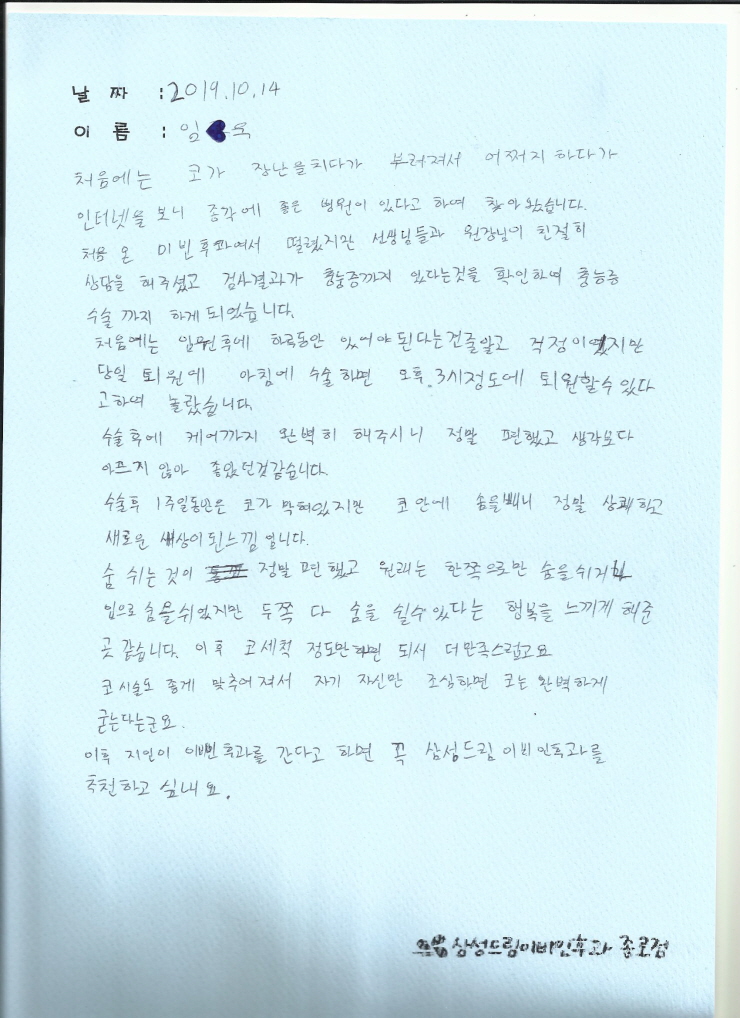 날 짜 : 2019.10.14
이 름 : 임 ♥ 욱
처음에는 코가 장난을치다가 부러져서 어쩌지 하다가
인터넷을 보니 종각에 좋은 병원이 있다고 하여 찾아왔습니다.
처음 온 이빈후과여서 떨렸지만 선생님들과 원장님이 친절히
상담을 해주셨고 검사결과가 충농증까지 있다는것을 확인하여 충농증
수술 까지 하게 되었습니다.
처음에는 입원후에 하루동안 있어야된다는건줄알고 걱정이였지만
당일 퇴원에 아침에 수술하면 오후.3시정도에 퇴원할수있다
고하여 놀랐습니다
수술후에 케어까지 완벽히 해주시니 정말 편했고 생각보다
아프지 않아 좋았던것같습니다.
수술후 1주일동안은 코가 막혀있지만 코 안에 솜을빼니 정말 상쾌하고
새로운 세상이된느낌 입니다.
숨 쉬는 것이 정말 편했고 원래는 한쪽으로만 숨을쉬거나
입으로 숨을쉬였지만 두쪽 다 숨을 쉴수있다는 행복을 느끼게 해준
곳 같습니다. 이후 코세척 정도만하면 되서 더만족스럽고요
코시술도 좋게 맞추어져서 자기 자신만 조심하면 코는 완벽하게
굳는다는군요.
이후 지인이 이빈후과를 간다고 하면 꼭 삼성드림이비인후과를
추천하고 싶네요.
삼성드림이비인후과 종로점